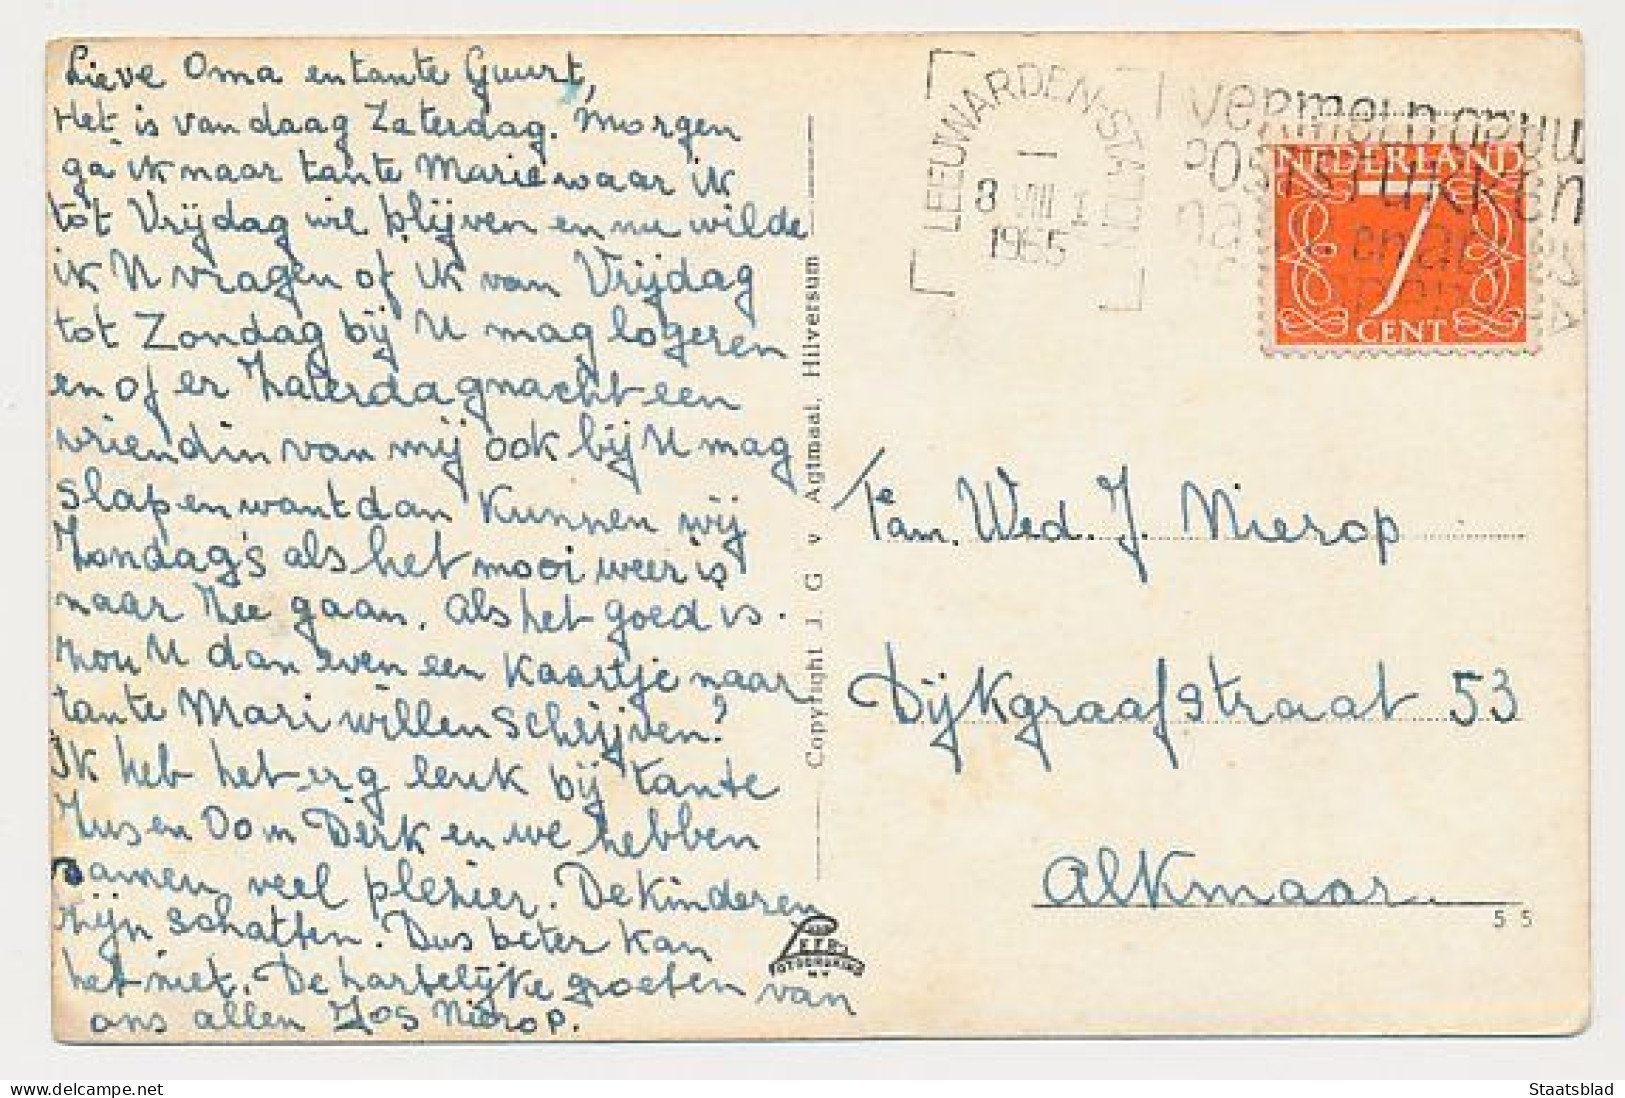 Lieve Oma en tante Guurt,
Het is vandaag Zaterdag. Morgen
ga ik naar tante Marie waar ik
tot Vrijdag wil blijven en nu wilde
ik U vragen of ik van Vrijdag
tot Zondag bij U mag logeren
en of er Zaterdagnacht een
vriendin van mij ook bij U mag
slapen want dan kunnen wij
Zondag's als het mooi weer is
naar Zee gaan. Als het goed is.
Zou U dan even een kaartje naar
tante Mari willen schrijven?
Ik heb het erg leuk bij tante
Zus en Oom Dirk en we hebben
samen veel plezier. De kinderen
zijn schatten. Dus beter kan
het niet. De hartelijke groeten van
ons allen Jos Nierop.
Copyright J. G v Agtmaal. Hilversum
LEEUWARDEN-STATION
1
8 VIII
1965
Vermeld op uw
poststukken
NEDERLAND
7
CENT
Fam. Wed. J. Nierop
Dijkgraafstraat 53
Alkmaar.
55
Staatsblad